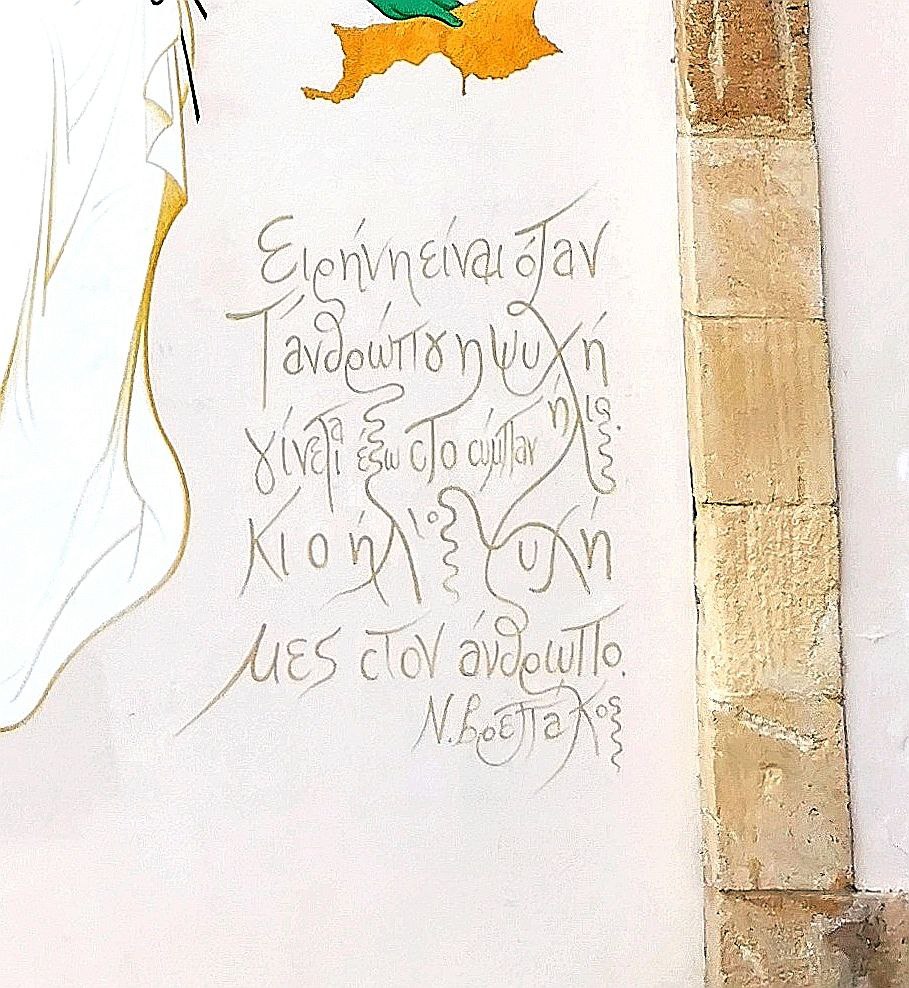 Ειρήνη είναι όταν
τ' ανθρώπου η ψυχή
γίνεται έξω στο σύμπαν ήλιος.
Κι ο ήλιος ψυχή
μες στον άνθρωπο.
Ν. Βρεττάκος